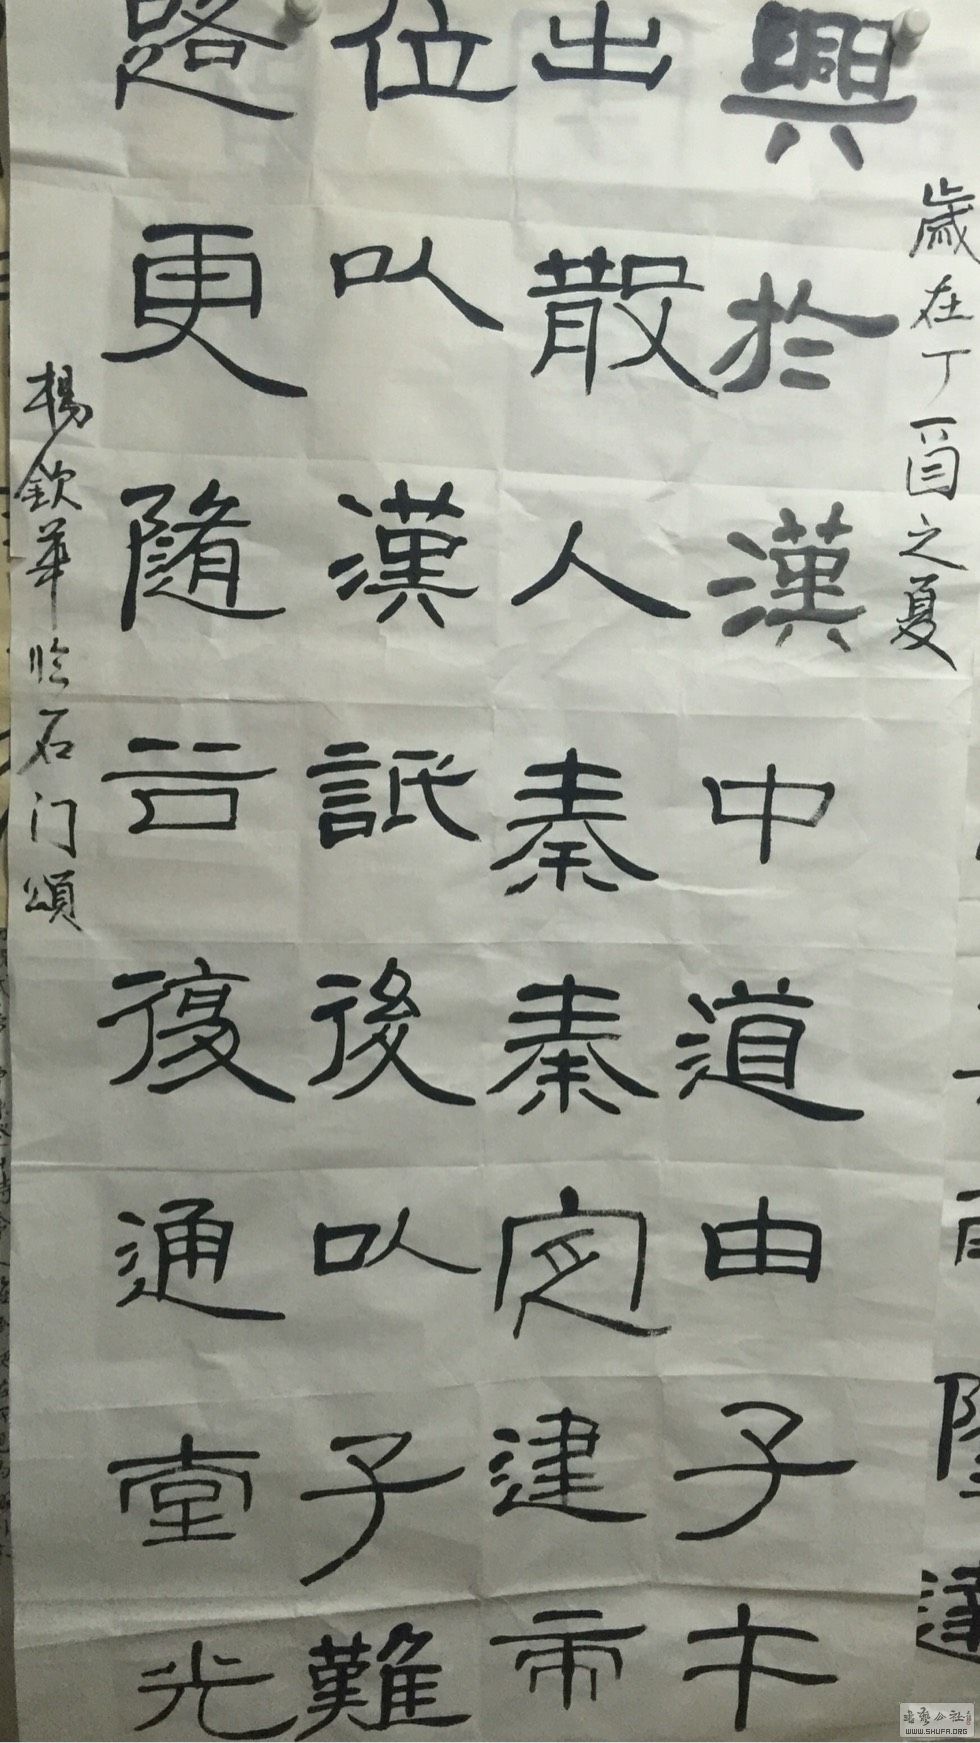 歲在丁酉之夏
興於漢中道由子午
出散入秦秦定建帝
位以漢詆後以子難
路更隨谷復通堂光
楊欽華臨石门頌
書藝公社
WWW.SHUFA.ORG